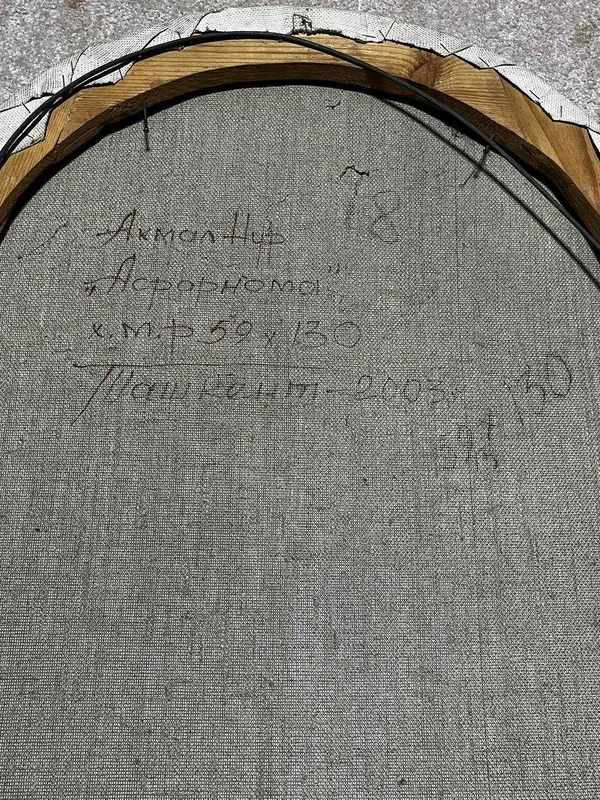 78
Акмал Нур
"Асрорнома"
х.м.р 59 х 130
Ташкент - 2003г.
130